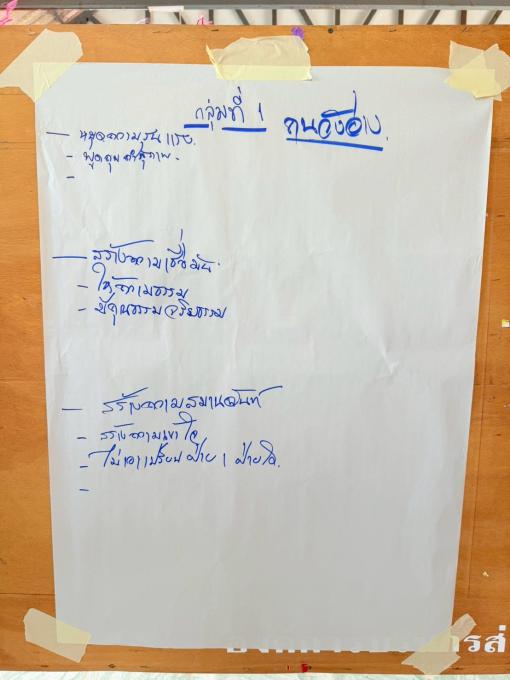 กลุ่มที่ 1 คนวังอ่าง
— หยุดความรุนแรง
- พูดคุยกันสุภาพ
-
— สร้างความเชื่อมั่น
- ให้ความธรรม
- มีคุณธรรมจริยธรรม
— สร้างความสมานฉันท์
- สร้างความเข้าใจ
- ไม่เอาเปรียบฝ่าย 1 ฝ่ายใด
-